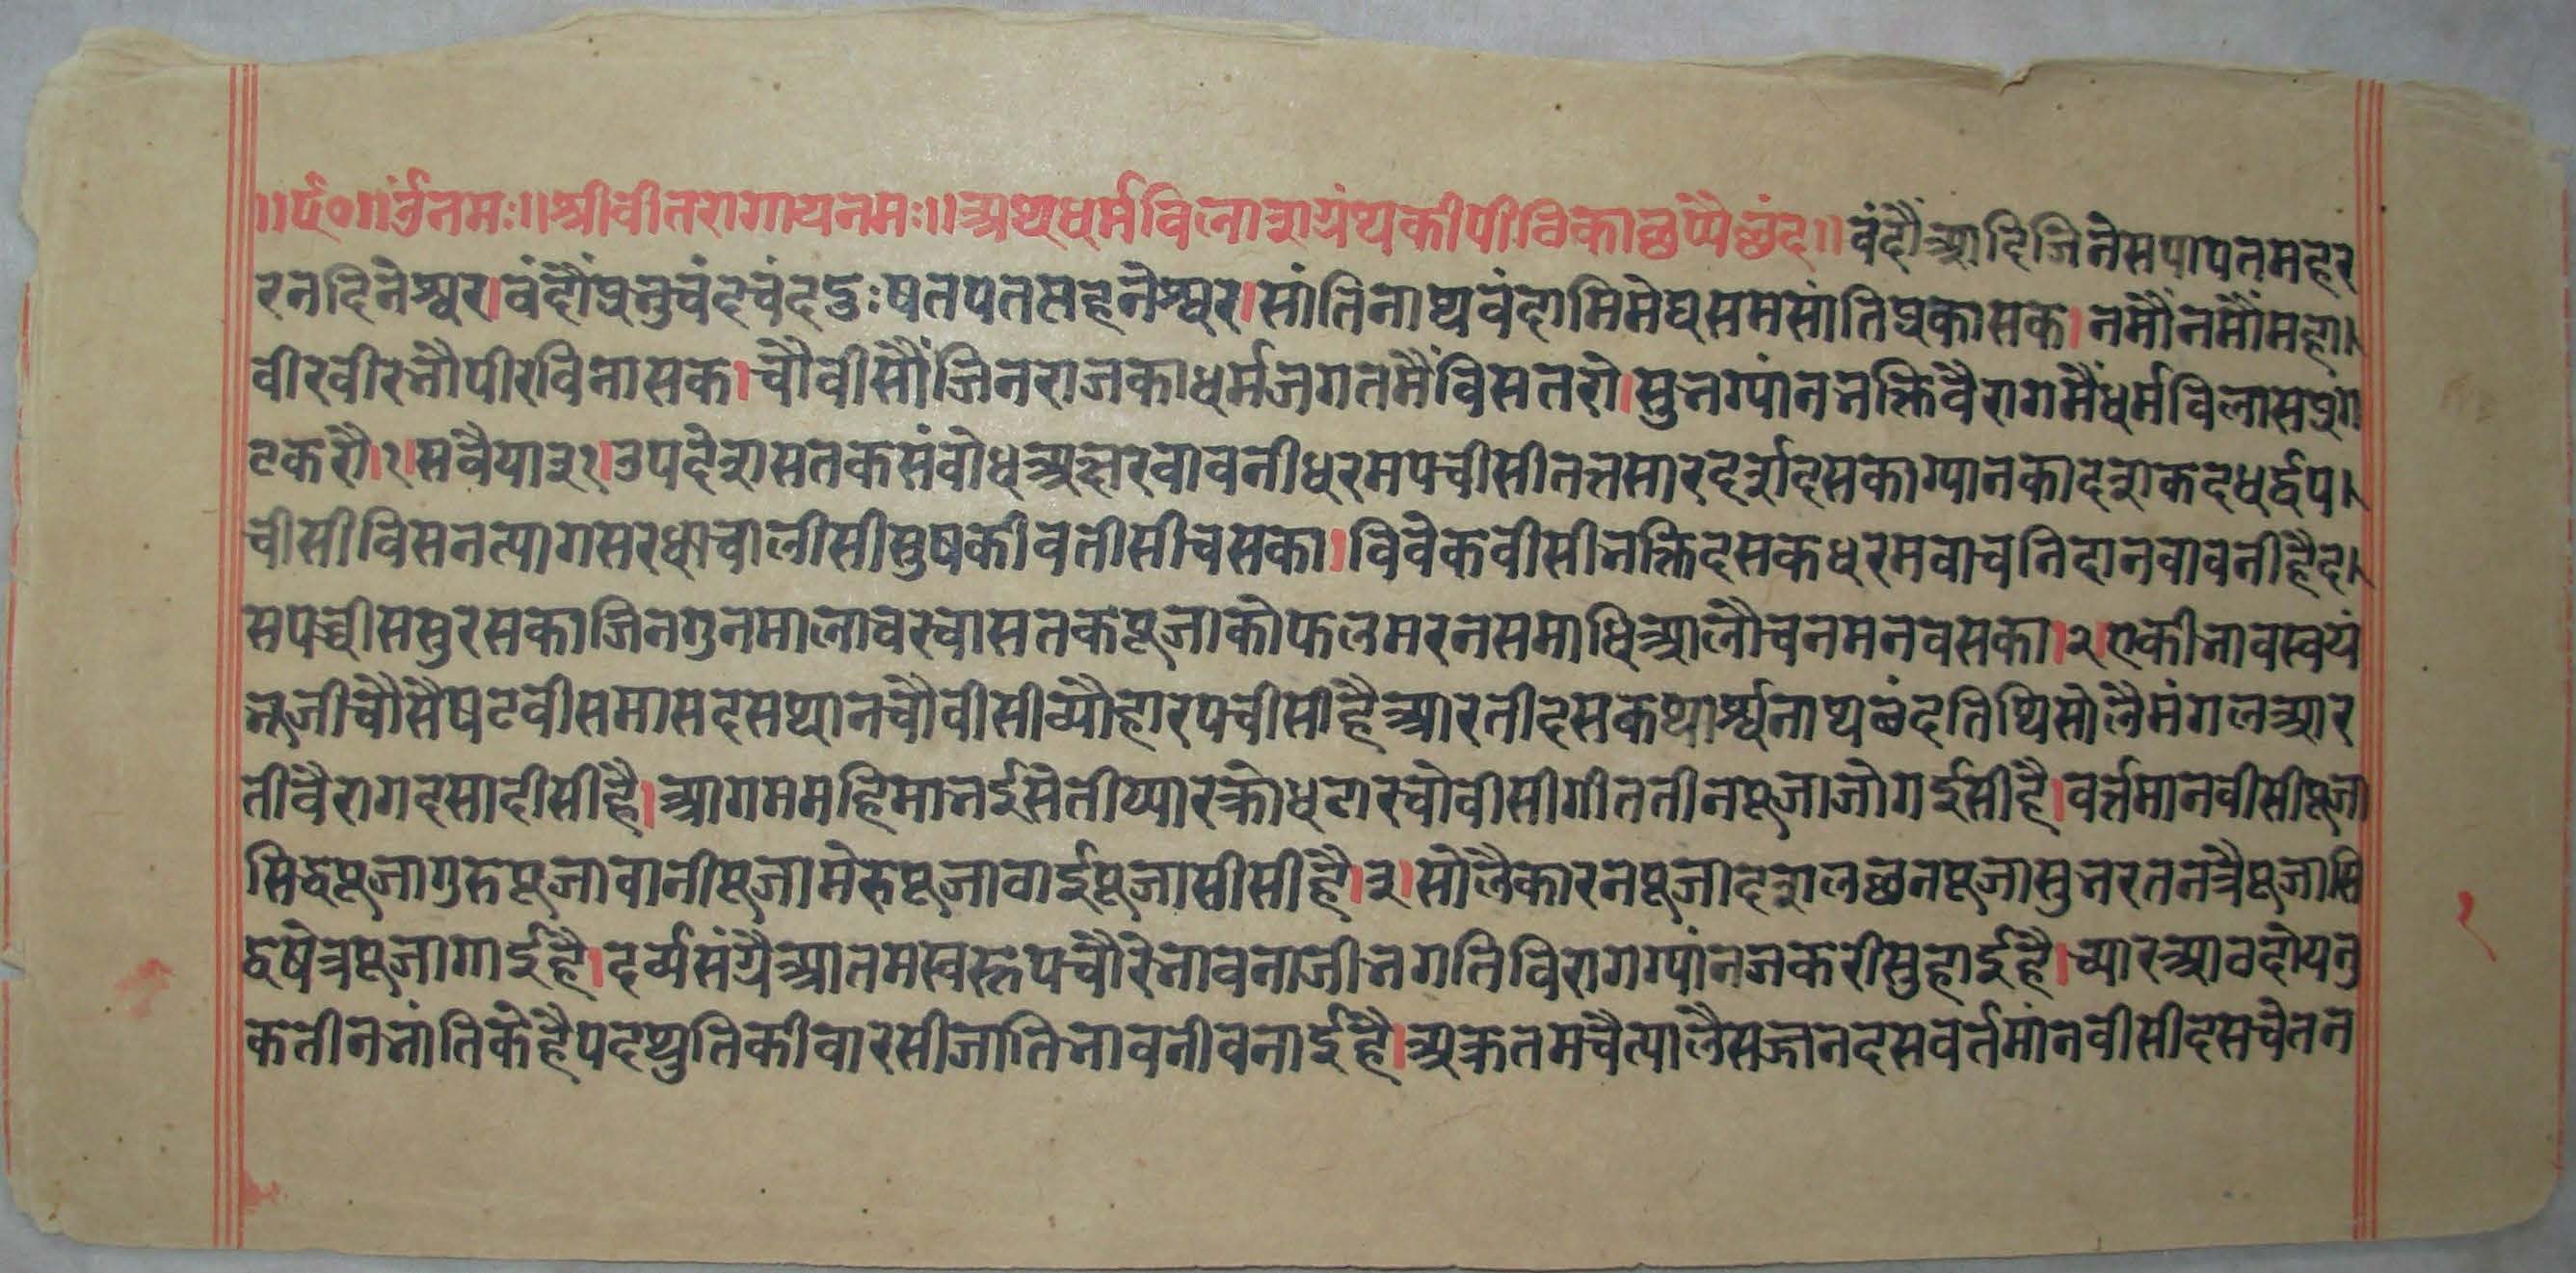 ॥र्प॰॥ॐनमः॥श्रीवीतरागायनमः॥अथधर्मविलाशग्रंथकीपीविकाछप्पैछंद॥वंदौंआदिजिनेसपापतमहर
रनदिनेश्वर।वंदौंप्रभुचंदचंददुःषतपतसहनेश्वर।सांतिनाथवंदामिमेघसमसांतिप्रकासक।नमौंनमौंमहा
वीरवीरभौपीरविनासक।चौवीसौंजिनराजकाधर्मजगतमैंविसतरो।सुभग्यांनभक्तिवैरागमैंधर्मविलासप्रग
टकरौ।१।सवैया३१।उपदेशसतकसंवोधअक्षरवावनीधरमपचीसीतत्तसारदर्शदसकाग्यानकादशकदधर्द्वप
चीसीविसनत्यागसरधाचालीसीसुषकीवतीसीचसका।विवेकवीसीभक्तिदसकधरमवाचनिदानवावनीहैद
सपच्चीससुरसकाजिनगुनमालावरचासतकपूजाकोफलमरनसमाधिआलौचनमनवसका।२।एकीभावस्वयं
भूजीचौसैषटवीसमासदसथानचौवीसीव्यौहारपचीसीहैआरतीदसकथार्श्वनाथछंदतिथिसोलैमंगलआर
तीवैरागदसादीसीहै।आगममहिमाभईसेतीप्यारक्रोधटारचोवीसीगीततीनपूजाजोगईसीहै।वर्त्तमानवीसीपूजा
सिद्धपूजागुरुपूजावानीपूजामेरुपूजावाईपूजासीसीहै।३।सोलैकारनपूजादशलछनपूजासुभरतनत्रैपूजासि
द्धषेत्रपूजागाईहै।दर्व्यसंग्रैआतमस्वरूपचौरेभावनाजीभगतिविरागग्यांनजकरीसुहाईहै।च्यारआवदोयभु
कतीनभांतिकेहैपदथुतिकीवारसीजातिभावनीवनाईहै।अक्रतमचैत्यालैसज्जनदसवर्तमांनवीसीदसचेतन
१